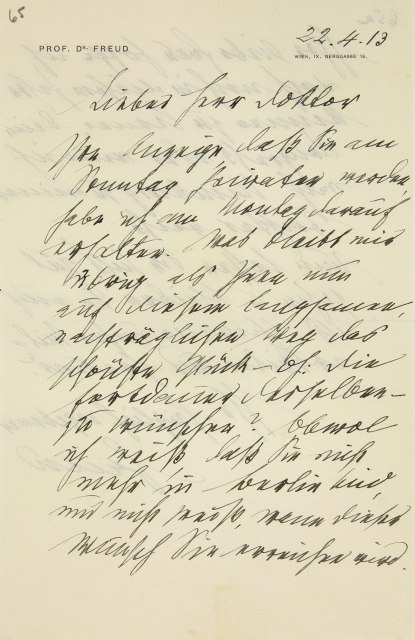 65
PROF. DR. FREUD
22.4.13
WIEN, IX. BERGGASSE 19.
Lieber Herr Doktor
Ihre Anzeige daß Sie am
Sonntag heiraten werden,
habe ich am Montag darauf
erhalten. Was bleibt mir
übrig als Ihnen nun
auf diesem langsamen,
nachträglichen Weg das
schönste Glück – oh. die
Fortdauer desselben –
zu wünschen? Obwol
ich weiß daß Sie nicht
mehr in Berlin sind,
und nicht weiß, wann dieser
Wunsch Sie erreichen wird.